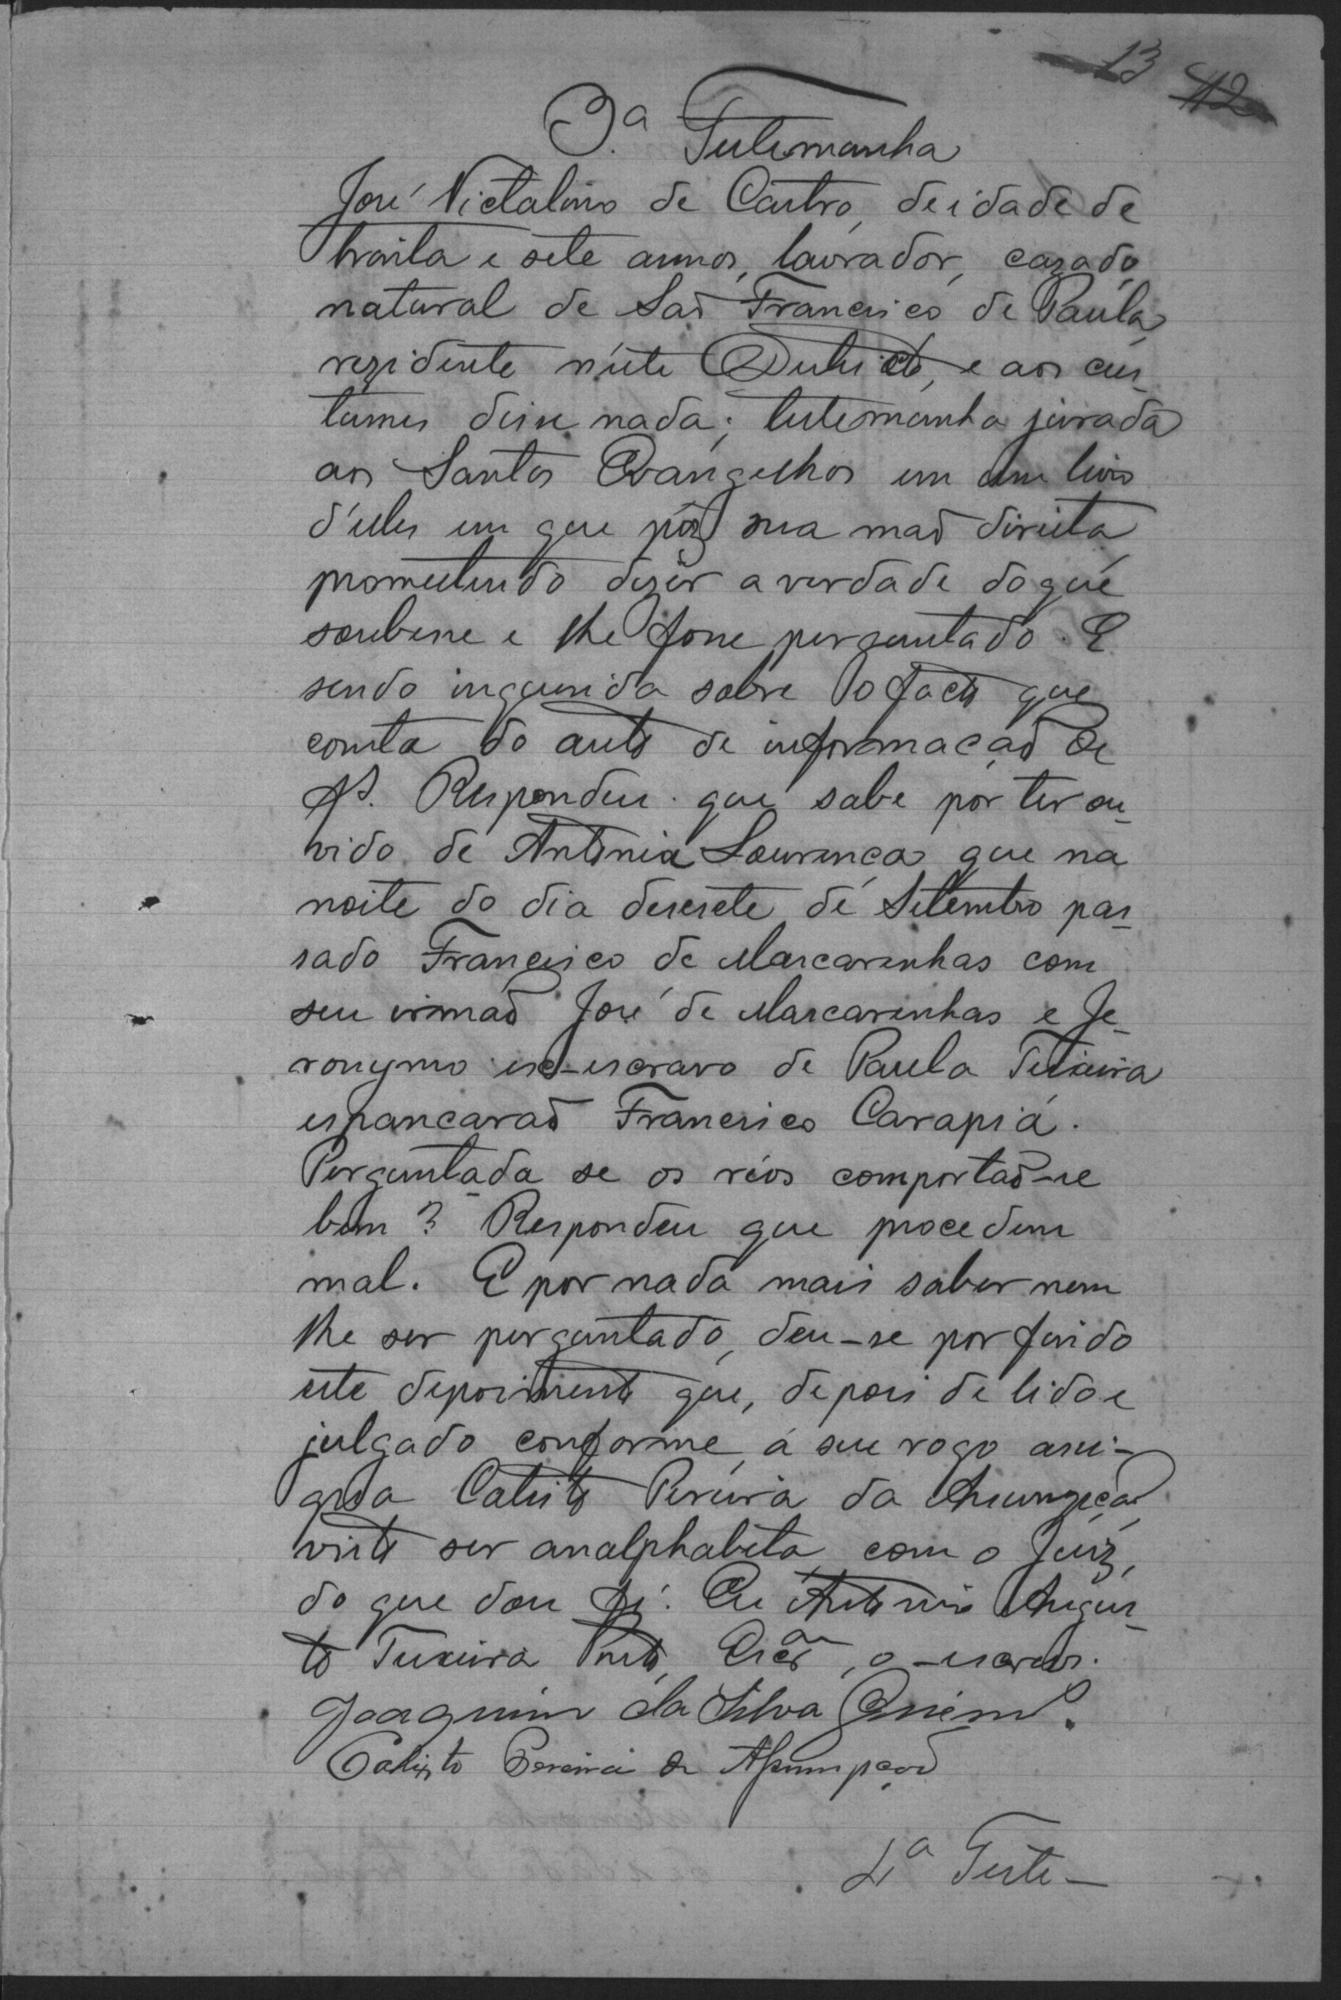 13 12
3.ª Testemunha
José Victalino de Castro, de idade de
trinta e sete annos, lavrador, cazado,
natural de Saõ Francisco de Paula,
rezidente n'este Districto, e aos cus-
tumes disse nada; testemunha jurada
aos Santos Evangelhos em um livro
d'elles em que pôz sua maõ direita
promettendo dizer a verdade do que
soubesse e lhe fosse perguntado. E
sendo inquirida sobre o facto que
consta do auto de informaçaõ de
fs. Respondeu que sabe por ter ou-
vido de Antonia Lourença que na
noite do dia desesete de Setembro pas-
sado Francisco de Mascarenhas com
seu irmaõ José de Mascarenhas e Je-
ronymo ex-escravo de Paula Teixeira
espancaraõ Francisco Carapiá.
Perguntada se os réos comportaõ-se
bem? Respondeu que procedem
mal. E por nada mais saber nem
lhe ser perguntado, deu-se por findo
este depoimento que, depois de lido e
julgado conforme, á seu rogo assi-
gna Calisto Pereira da Assumpçaõ
visto ser analphabeta, com o Juiz,
do que dou fé. Eu Antonio Augus-
to Teixeira Porto, Escr.am, o escrevi.
Joaquim da Silva
Calixto Pereira da Assumpçaõ
4ª Teste-